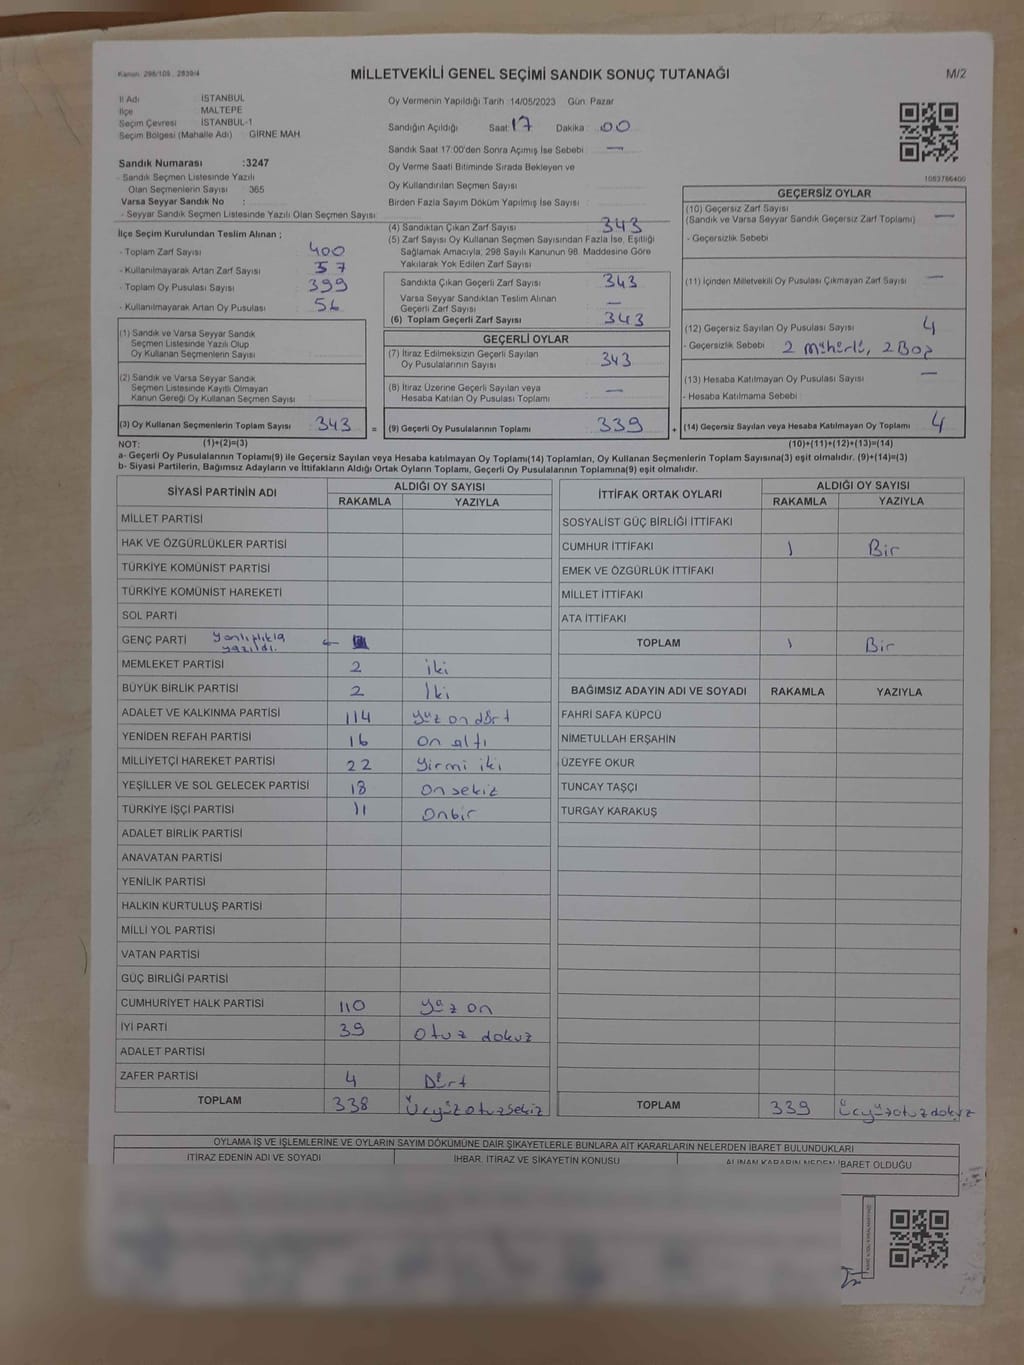 Kanun: 298/109 , 2839/4
MİLLETVEKİLİ GENEL SEÇİMİ SANDIK SONUÇ TUTANAĞI
M/2
İl Adı İSTANBUL
İlçe MALTEPE
Seçim Çevresi İSTANBUL-1
Seçim Bölgesi (Mahalle Adı) GİRNE MAH.
Sandık Numarası :3247
- Sandık Seçmen Listesinde Yazılı
Olan Seçmenlerin Sayısı : 365
Varsa Seyyar Sandık No :
- Seyyar Sandık Seçmen Listesinde Yazılı Olan Seçmen Sayısı:
İlçe Seçim Kurulundan Teslim Alınan ;
- Toplam Zarf Sayısı : 400
- Kullanılmayarak Artan Zarf Sayısı : 57
- Toplam Oy Pusulası Sayısı : 399
- Kullanılmayarak Artan Oy Pusulası : 56
(1) Sandık ve Varsa Seyyar Sandık
Seçmen Listesinde Yazılı Olup
Oy Kullanan Seçmenlerin Sayısı :
(2) Sandık ve Varsa Seyyar Sandık
Seçmen Listesinde Kayıtlı Olmayan
Kanun Gereği Oy Kullanan Seçmen Sayısı :
(3) Oy Kullanan Seçmenlerin Toplam Sayısı : 343
Oy Vermenin Yapıldığı Tarih :14/05/2023 Gün: Pazar
Sandığın Açıldığı Saat: 17 Dakika : 00
Sandık Saat 17:00'den Sonra Açımış İse Sebebi : —
Oy Verme Saati Bitiminde Sırada Bekleyen ve
Oy Kullandırılan Seçmen Sayısı :
Birden Fazla Sayım Döküm Yapılmış İse Sayısı :
(4) Sandıktan Çıkan Zarf Sayısı : 343
(5) Zarf Sayısı Oy Kullanan Seçmen Sayısından Fazla İse, Eşitliği
Sağlamak Amacıyla, 298 Sayılı Kanunun 98. Maddesine Göre
Yakılarak Yok Edilen Zarf Sayısı :
Sandıkta Çıkan Geçerli Zarf Sayısı : 343
Varsa Seyyar Sandıktan Teslim Alınan
Geçerli Zarf Sayısı : —
(6) Toplam Geçerli Zarf Sayısı : 343
GEÇERLİ OYLAR
(7) İtiraz Edilmeksizin Geçerli Sayılan
Oy Pusulalarının Sayısı : 343
(8) İtiraz Üzerine Geçerli Sayılan veya
Hesaba Katılan Oy Pusulası Toplamı : —
= (9) Geçerli Oy Pusulalarının Toplamı : 339 +
1083766400
GEÇERSİZ OYLAR
(10) Geçersiz Zarf Sayısı : —
(Sandık ve Varsa Seyyar Sandık Geçersiz Zarf Toplamı)
- Geçersizlik Sebebi :
(11) İçinden Milletvekili Oy Pusulası Çıkmayan Zarf Sayısı : —
(12) Geçersiz Sayılan Oy Pusulası Sayısı : 4
- Geçersizlik Sebebi : 2 mühürlü, 2 Boş
(13) Hesaba Katılmayan Oy Pusulası Sayısı : —
- Hesaba Katılmama Sebebi :
(14) Geçersiz Sayılan veya Hesaba Katılmayan Oy Toplamı : 4
NOT: (1)+(2)=(3) (10)+(11)+(12)+(13)=(14)
a- Geçerli Oy Pusulalarının Toplamı(9) ile Geçersiz Sayılan veya Hesaba katılmayan Oy Toplamı(14) Toplamları, Oy Kullanan Seçmenlerin Toplam Sayısına(3) eşit olmalıdır. (9)+(14)=(3)
b- Siyasi Partilerin, Bağımsız Adayların ve İttifakların Aldığı Ortak Oyların Toplamı, Geçerli Oy Pusulalarının Toplamına(9) eşit olmalıdır.
SİYASİ PARTİNİN ADI ALDIĞI OY SAYISI
RAKAMLA YAZIYLA
MİLLET PARTİSİ
HAK VE ÖZGÜRLÜKLER PARTİSİ
TÜRKİYE KOMÜNİST PARTİSİ
TÜRKİYE KOMÜNİST HAREKETİ
SOL PARTİ
GENÇ PARTİ Yanlışlıkla yazıldı. ←
MEMLEKET PARTİSİ 2 iki
BÜYÜK BİRLİK PARTİSİ 2 İki
ADALET VE KALKINMA PARTİSİ 114 yüz on dört
YENİDEN REFAH PARTİSİ 16 on altı
MİLLİYETÇİ HAREKET PARTİSİ 22 yirmi iki
YEŞİLLER VE SOL GELECEK PARTİSİ 18 onsekiz
TÜRKİYE İŞÇİ PARTİSİ 11 onbir
ADALET BİRLİK PARTİSİ
ANAVATAN PARTİSİ
YENİLİK PARTİSİ
HALKIN KURTULUŞ PARTİSİ
MİLLİ YOL PARTİSİ
VATAN PARTİSİ
GÜÇ BİRLİĞİ PARTİSİ
CUMHURİYET HALK PARTİSİ 110 yüz on
İYİ PARTİ 39 otuz dokuz
ADALET PARTİSİ
ZAFER PARTİSİ 4 Dört
TOPLAM 338 Üçyüzotuzsekiz
İTTİFAK ORTAK OYLARI ALDIĞI OY SAYISI
RAKAMLA YAZIYLA
SOSYALİST GÜÇ BİRLİĞİ İTTİFAKI
CUMHUR İTTİFAKI 1 Bir
EMEK VE ÖZGÜRLÜK İTTİFAKI
MİLLET İTTİFAKI
ATA İTTİFAKI
TOPLAM 1 Bir
BAĞIMSIZ ADAYIN ADI VE SOYADI RAKAMLA YAZIYLA
FAHRİ SAFA KÜPCÜ
NİMETULLAH ERŞAHİN
ÜZEYFE OKUR
TUNCAY TAŞÇI
TURGAY KARAKUŞ
TOPLAM 339 Üçyüzotuzdokuz
OYLAMA İŞ VE İŞLEMLERİNE VE OYLARIN SAYIM DÖKÜMÜNE DAİR ŞİKAYETLERLE BUNLARA AİT KARARLARIN NELERDEN İBARET BULUNDUKLARI
İTİRAZ EDENİN ADI VE SOYADI İHBAR, İTİRAZ VE ŞİKAYETİN KONUSU ALINAN KARARIN NEDEN İBARET OLDUĞU